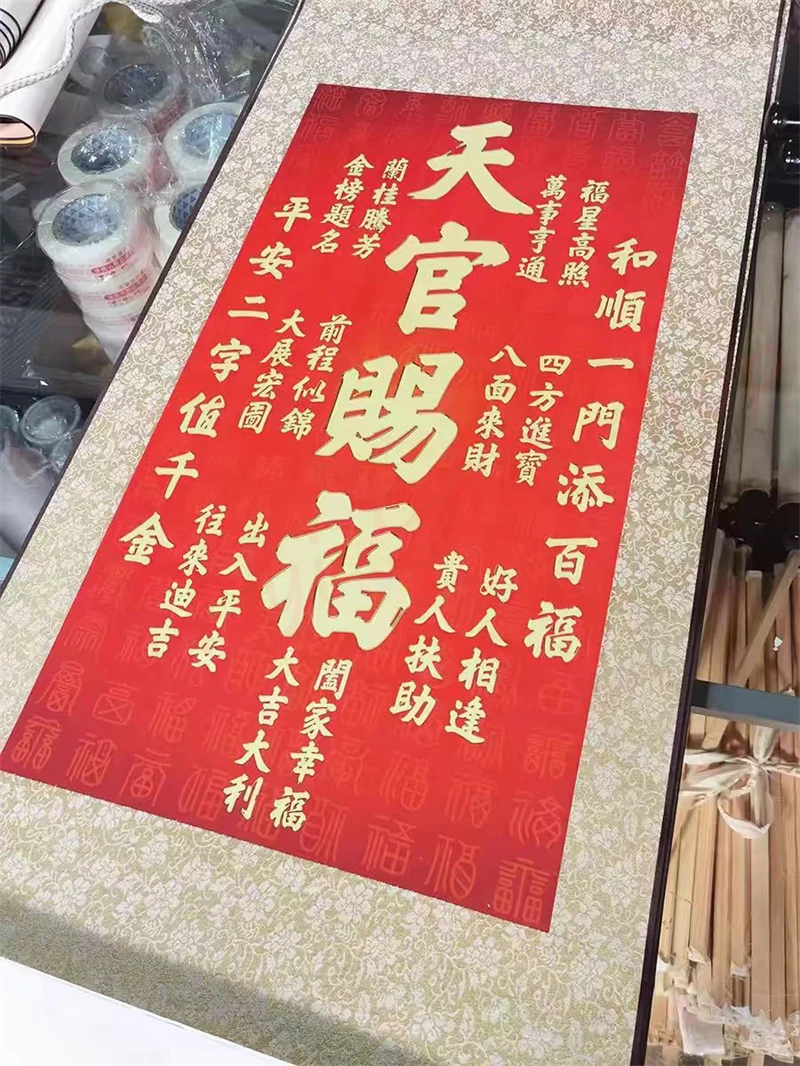 和順一門添百福
福星高照
萬事亨通
四方進寶
八面來財
好人相逢
貴人扶助
天官賜福
闔家幸福
大吉大利
蘭桂騰芳
金榜題名
前程似錦
大展宏圖
出入平安
往來迪吉
平安二字值千金